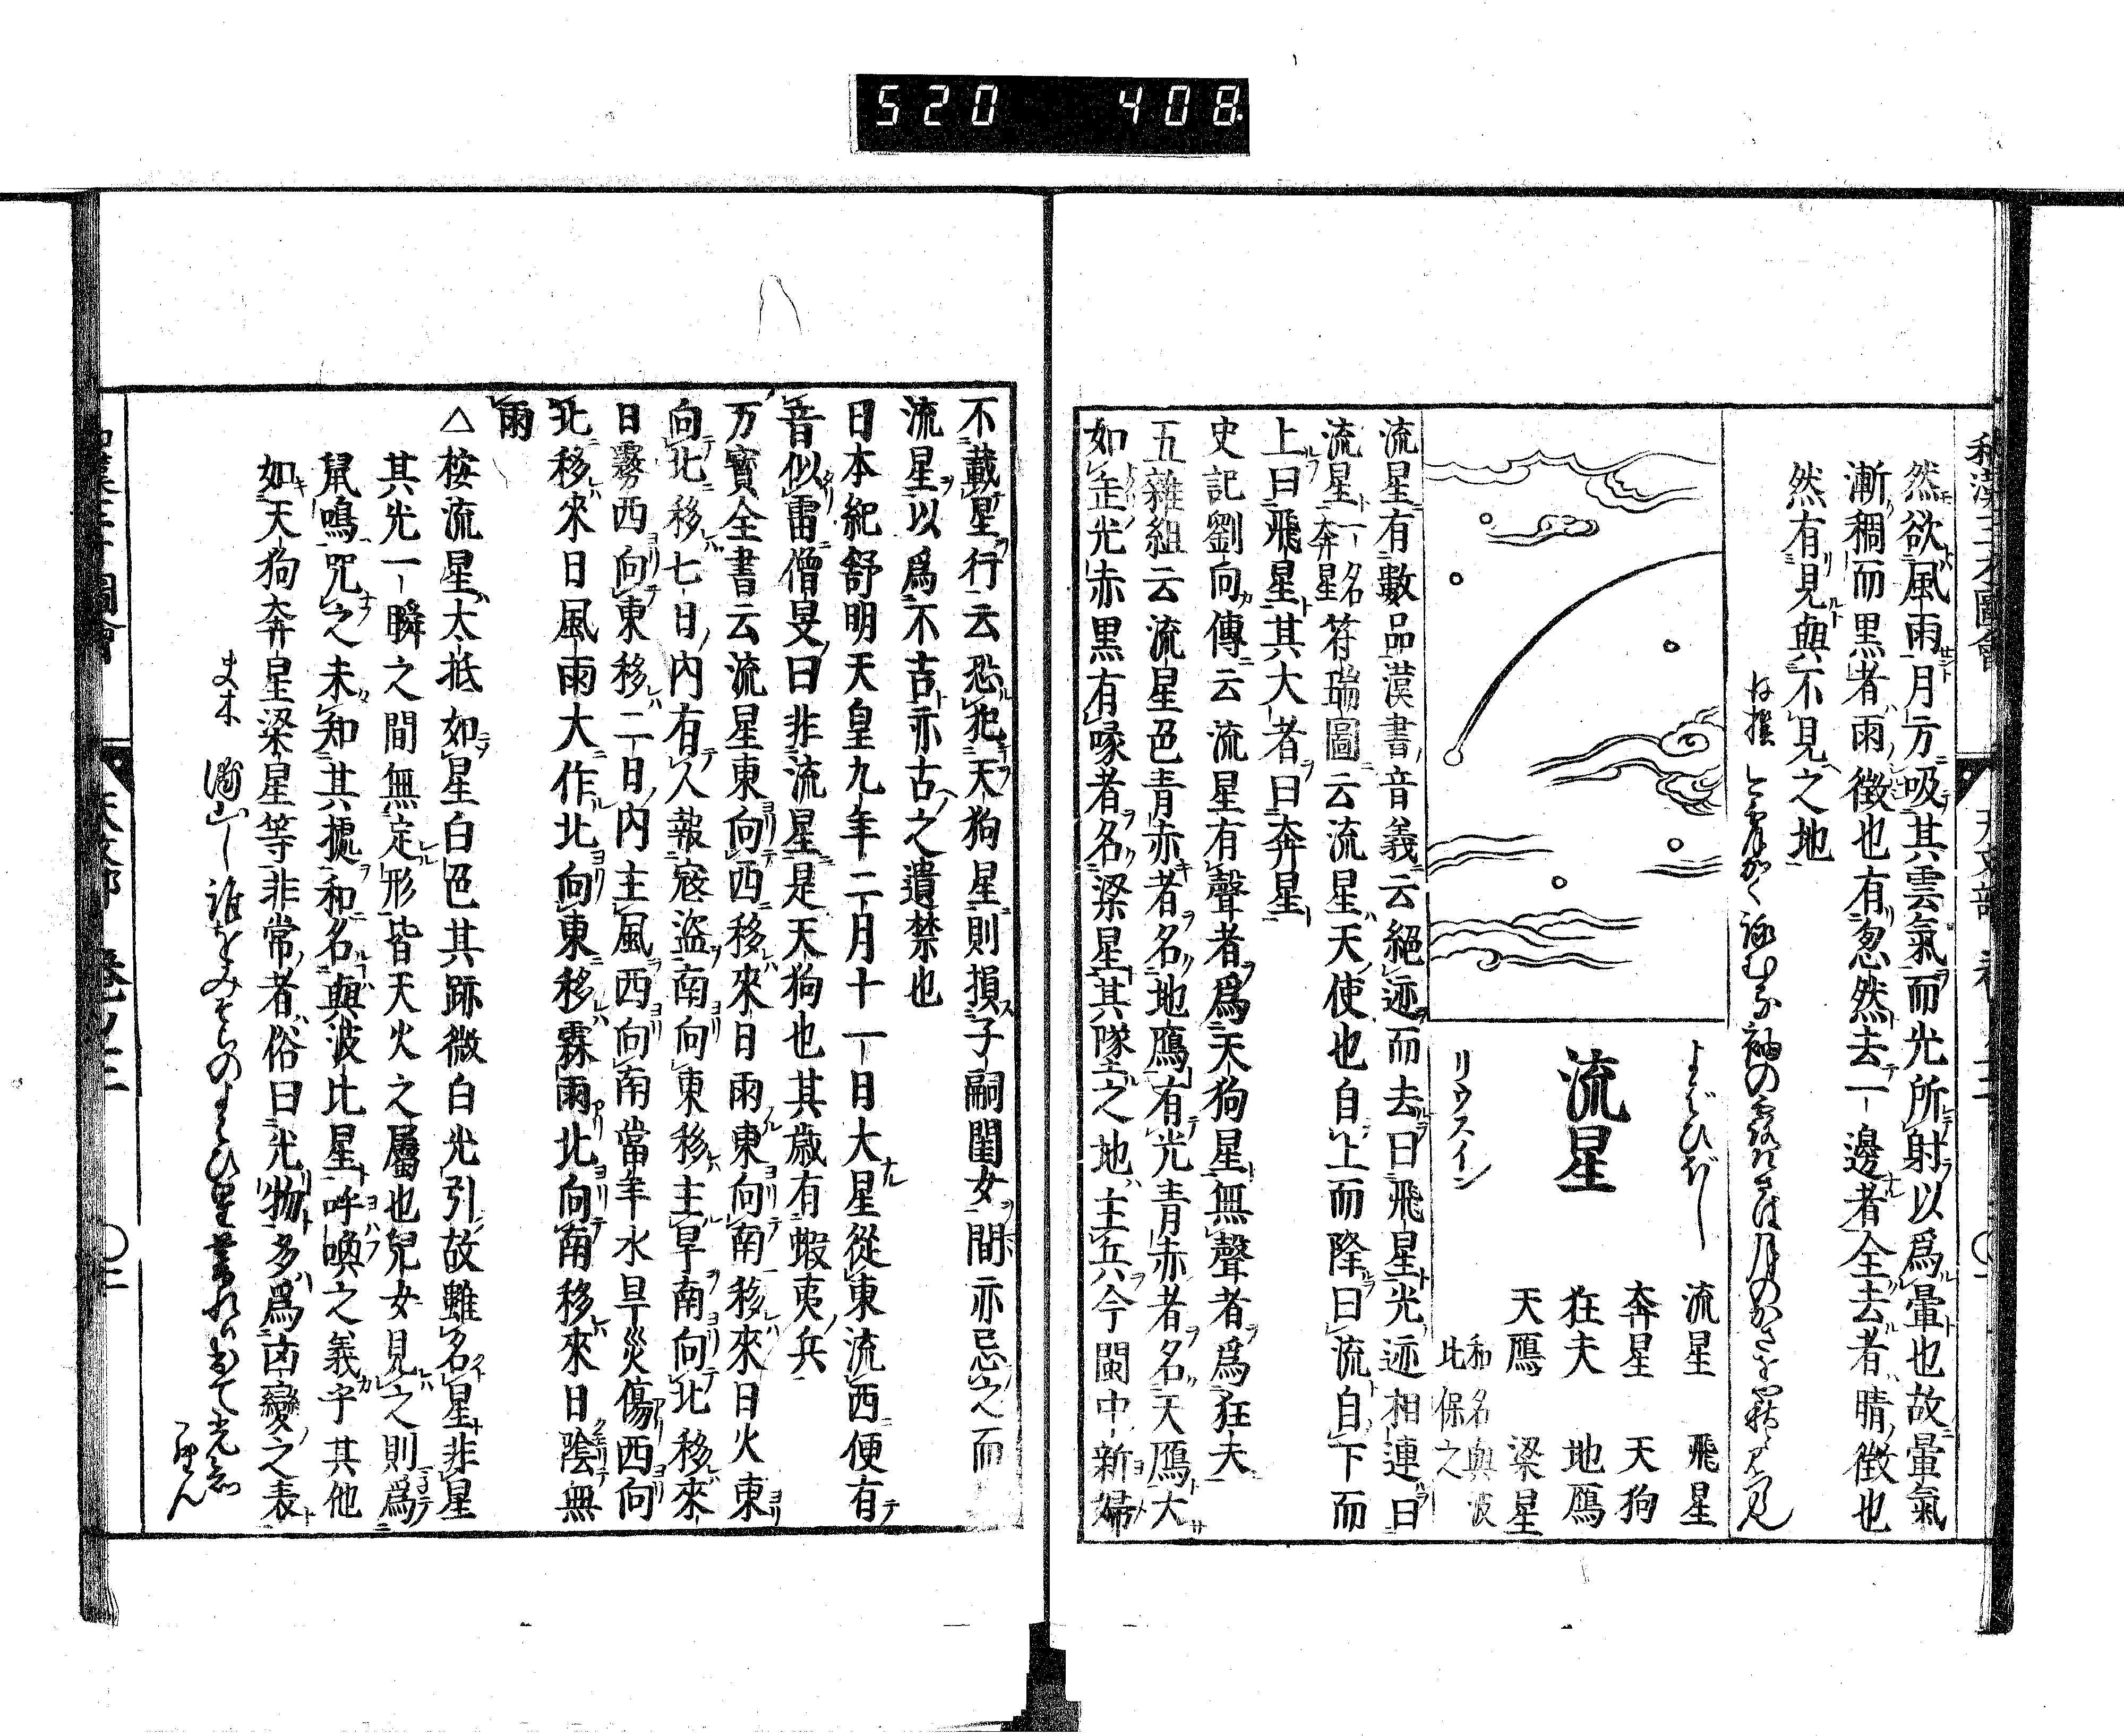 520 408
和漢三才圖會 天文部 卷之三
然欲風雨月方吸其雲氣而光所射以爲暈也故暈氣
漸稠而黒者雨徴也有忽然去一邊者全去者晴徴也
然有見與不見之地
よばひぼし
流星
リウスイン
流星 飛星
奔星 天狗
狂夫 地鴈
天鴈 梁星
和名與波
比保之
流星有數品漢書音義云絕迹而去曰飛星光迹相連曰
流星一名奔星符瑞圖云流星天使也自上而降曰流自下而
上曰飛星其大者曰奔星
史記劉向傳云流星有聲者爲天狗星無聲者爲狂夫
五雜組云流星色青赤者名地鴈有光青赤者名天鴈大
如缶光赤黒有喙者名梁星其墜之地主兵今閩中新婦
不載星行云恐犯天狗星則損子嗣閨女間亦忌之而
流星以爲不吉亦古之遺禁也
日本紀舒明天皇九年二月十一日大星從東流西便有
音似雷僧旻曰非流星是天狗也其歳有蝦夷兵
万寳全書云流星東向西移來日雨東向南移來日火東
向北移七日内有人報寇盜南向東移主旱南向北移來
日霧西向東移二日内主風西向南當年水旱災傷西向
北移來日風雨大作北向東移霖雨北向南移來日陰無
雨
△桉流星大抵如星白色其跡微白光引故雖名星非星
其光一瞬之間無定形皆天火之屬也兒女見之則爲
鼠鳴咒之未知其據和名與波比星呼喚之義乎其他
如天狗奔星梁星等非常者俗曰光物多爲凶變之表
和漢三才圖會 天文部 卷ノ三 〇二